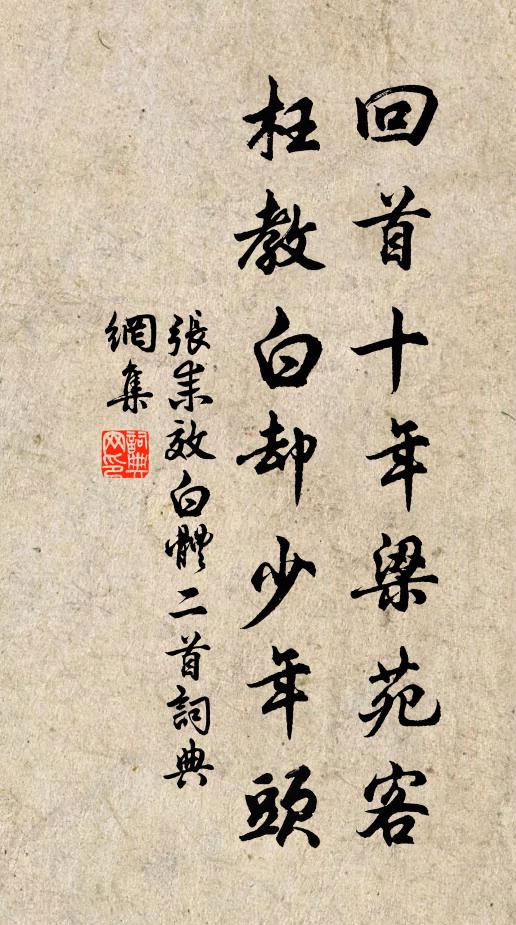 回首十年梁苑客
枉教白却少年頭
張耒效白體二首詞典
網集
詞典网印